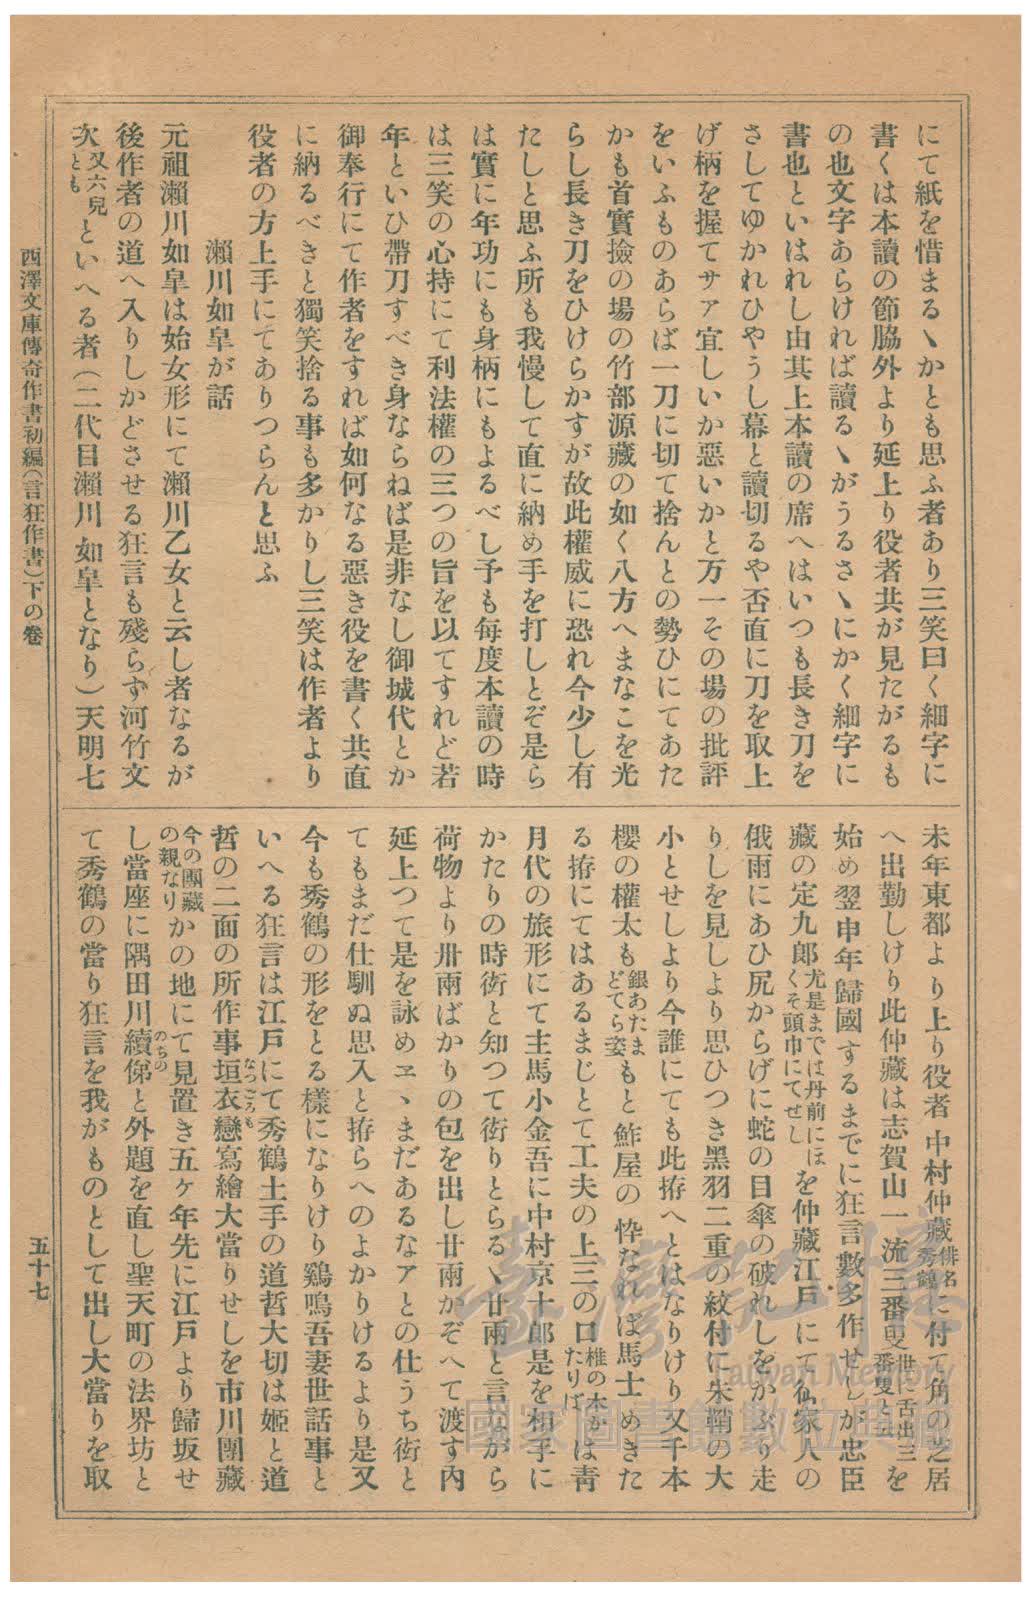 にて紙を惜まるゝかとも思ふ者あり三笑曰く細字に
書くは本讀の節脇外より延上り役者共が見たがるも
の也文字あらければ讀るゝがうるさゝにかく細字に
書也といはれし由其上本讀の席へはいつも長き刀を
さしてゆかれひやうし幕と讀切るや否直に刀を取上
げ柄を握てサァ宜しいか惡いかと万一その場の批評
をいふものあらば一刀に切て捨んとの勢ひにてあた
かも首實撿の場の竹部源藏の如く八方へまなこを光
らし長き刀をひけらかすが故此權威に恐れ今少し有
たしと思ふ所も我慢して直に納め手を打しとぞ是ら
は實に年功にも身柄にもよるべし予も每度本讀の時
は三笑の心持にて利法權の三つの旨を以てすれど若
年といひ帶刀すべき身ならねば是非なし御城代とか
御奉行にて作者をすれば如何なる惡き役を書く共直
に納るべきと獨笑捨る事も多かりし三笑は作者より
役者の方上手にてありつらんと思ふ
瀨川如皐が話
元祖瀨川如皐は始女形にて瀨川乙女と云し者なるが
後作者の道へ入りしかどさせる狂言も殘らず河竹文
次又六兒ともといへる者(二代目瀨川如皐となり)天明七
未年東都より上り役者中村仲藏俳名秀鶴に付て角の芝居
へ出勤しけり此仲藏は志賀山一流三番叟世に舌出三番叟と云を
始め翌申年歸國するまでに狂言數多作せしが忠臣
藏の定九郎尤是までは丹前にほくそ頭巾にてせしを仲藏江戶にて仙家人の
俄雨にあひ尻からげに蛇の目傘の破れしをかぶり走
りしを見しより思ひつき黑羽二重の紋付に朱鞘の大
小とせしより今誰にても此拵へとはなりけり又千本
櫻の權太も銀あたまどてら姿もと鮓屋の忰なれば馬士めきた
る拵にてはあるまじとて工夫の上三の口椎の木かはたりば靑
月代の旅形にて主馬小金吾に中村京十郎是を相手に
かたりの時衒と知つて衒りとらるゝ廿兩と言ながら
荷物より卅兩ばかりの包を出し廿兩かぞへて渡す內
延上つて是を詠めヱヽまだあるなアとの仕うち衒と
てもまだ仕馴ぬ思入と拵らへのよかりけるより是又
今も秀鶴の形をとる樣になりけり鷄鳴吾妻世話事と
いへる狂言は江戶にて秀鶴土手の道哲大切は姬と道
哲の二面の所作事垣衣戀寫繪大當りせしを市川團藏
今の團藏の親なりかの地にて見置き五ヶ年先に江戶より歸坂せ
し當座に隅田川續俤のちのと外題を直し聖天町の法界坊と
て秀鶴の當り狂言を我がものとして出し大當りを取
西澤文庫傳奇作書初編(言狂作書)下の卷
五十七
臺灣記憶
Taiwan Memory
國家圖書館數位典藏